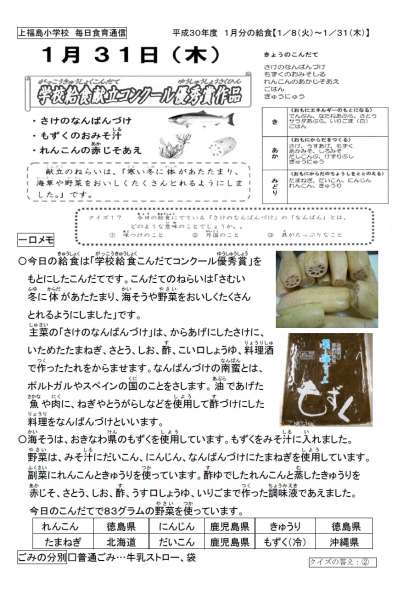 上福島小学校 毎日食育通信
平成30年度 1月分の給食【1／8（火）～1／31（木）】
1月31日（木）
がっこうきゅうしょくこんだて ゆうしゅうしょうさくひん
学校給食献立コンクール優秀賞作品
・さけのなんばんづけ
・もずくのおみそ汁
・れんこんの赤じそあえ
献立のねらいは、「寒い冬に体があたたまり、
海草や野菜をおいしくたくさんとれるようにしま
した。」です。
きょうのこんだて
さけのなんばんづけ
もずくのおみそしる
れんこんのあかじそあえ
ごはん
ぎゅうにゅう
き
【おもにエネルギーのもとになる】
でんぷん、なたねあぶら、さとう
ごはん
あか
【おもにからだをつくる】
さけ、うすあげ、もずく
あかみそ、しろみそ
だしこんぶ、けずりぶし
ぎゅうにゅう
みどり
【おもにからだのちょうしをととのえる】
たまねぎ、だいこん、にんじん
れんこん、きゅうり
クイズ!? 今日の給食にでている「さけのなんばんづけ」の「なんばん」とは、
どのような意味のことでしょうか。
① 味つけのこと ② 外国のこと ③ 具がたっぷりなこと
一口メモ
○今日の給食は「学校給食こんだてコンクール優秀賞」を
もとにしたこんだてです。こんだてのねらいは「さむい
冬に体があたたまり、海そうや野菜をおいしくたくさん
とれるようにしました」です。
主菜の「さけのなんばんづけ」は、からあげにしたさけに、
いためたたまねぎ、さとう、しお、酢、こい口しょうゆ、料理酒
で作ったたれをからませます。なんばんづけの南蛮とは、
ポルトガルやスペインの国のことをさします。油であげた
魚や肉に、ねぎやとうがらしなどを使用して酢づけにした
料理をなんばんづけといいます。
もずく
○海そうは、おきなわ県のもずくを使用しています。もずくをみそ汁に入れました。
野菜は、みそ汁にだいこん、にんじん、なんばんづけにたまねぎを使用しています。
副菜にれんこんときゅうりを使っています。酢ゆでしたれんこんと蒸したきゅうりを
赤じそ、さとう、しお、酢、うす口しょうゆ、いりごまで作った調味液であえました。
今日のこんだてで83グラムの野菜を使っています。
れんこん 徳島県 にんじん 鹿児島県 きゅうり 徳島県
たまねぎ 北海道 だいこん 鹿児島県 もずく（冷） 沖縄県
ごみの分別 □普通ごみ…牛乳ストロー、袋
クイズの答え：②